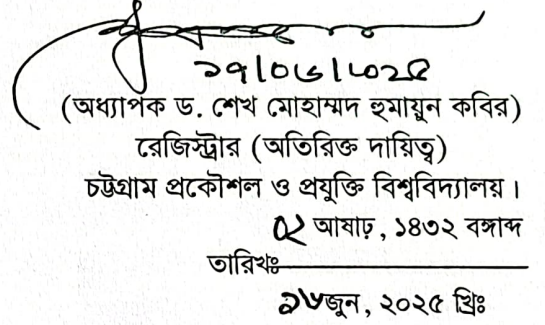 ১৭/০৬/২০২৫
(অধ্যাপক ড. শেখ মোহাম্মদ হুমায়ুন কবির)
রেজিস্ট্রার (অতিরিক্ত দায়িত্ব)
চট্টগ্রাম প্রকৌশল ও প্রযুক্তি বিশ্ববিদ্যালয়।
০২ আষাঢ়, ১৪৩২ বঙ্গাব্দ
তারিখঃ
১৬ জুন, ২০২৫ খ্রিঃ